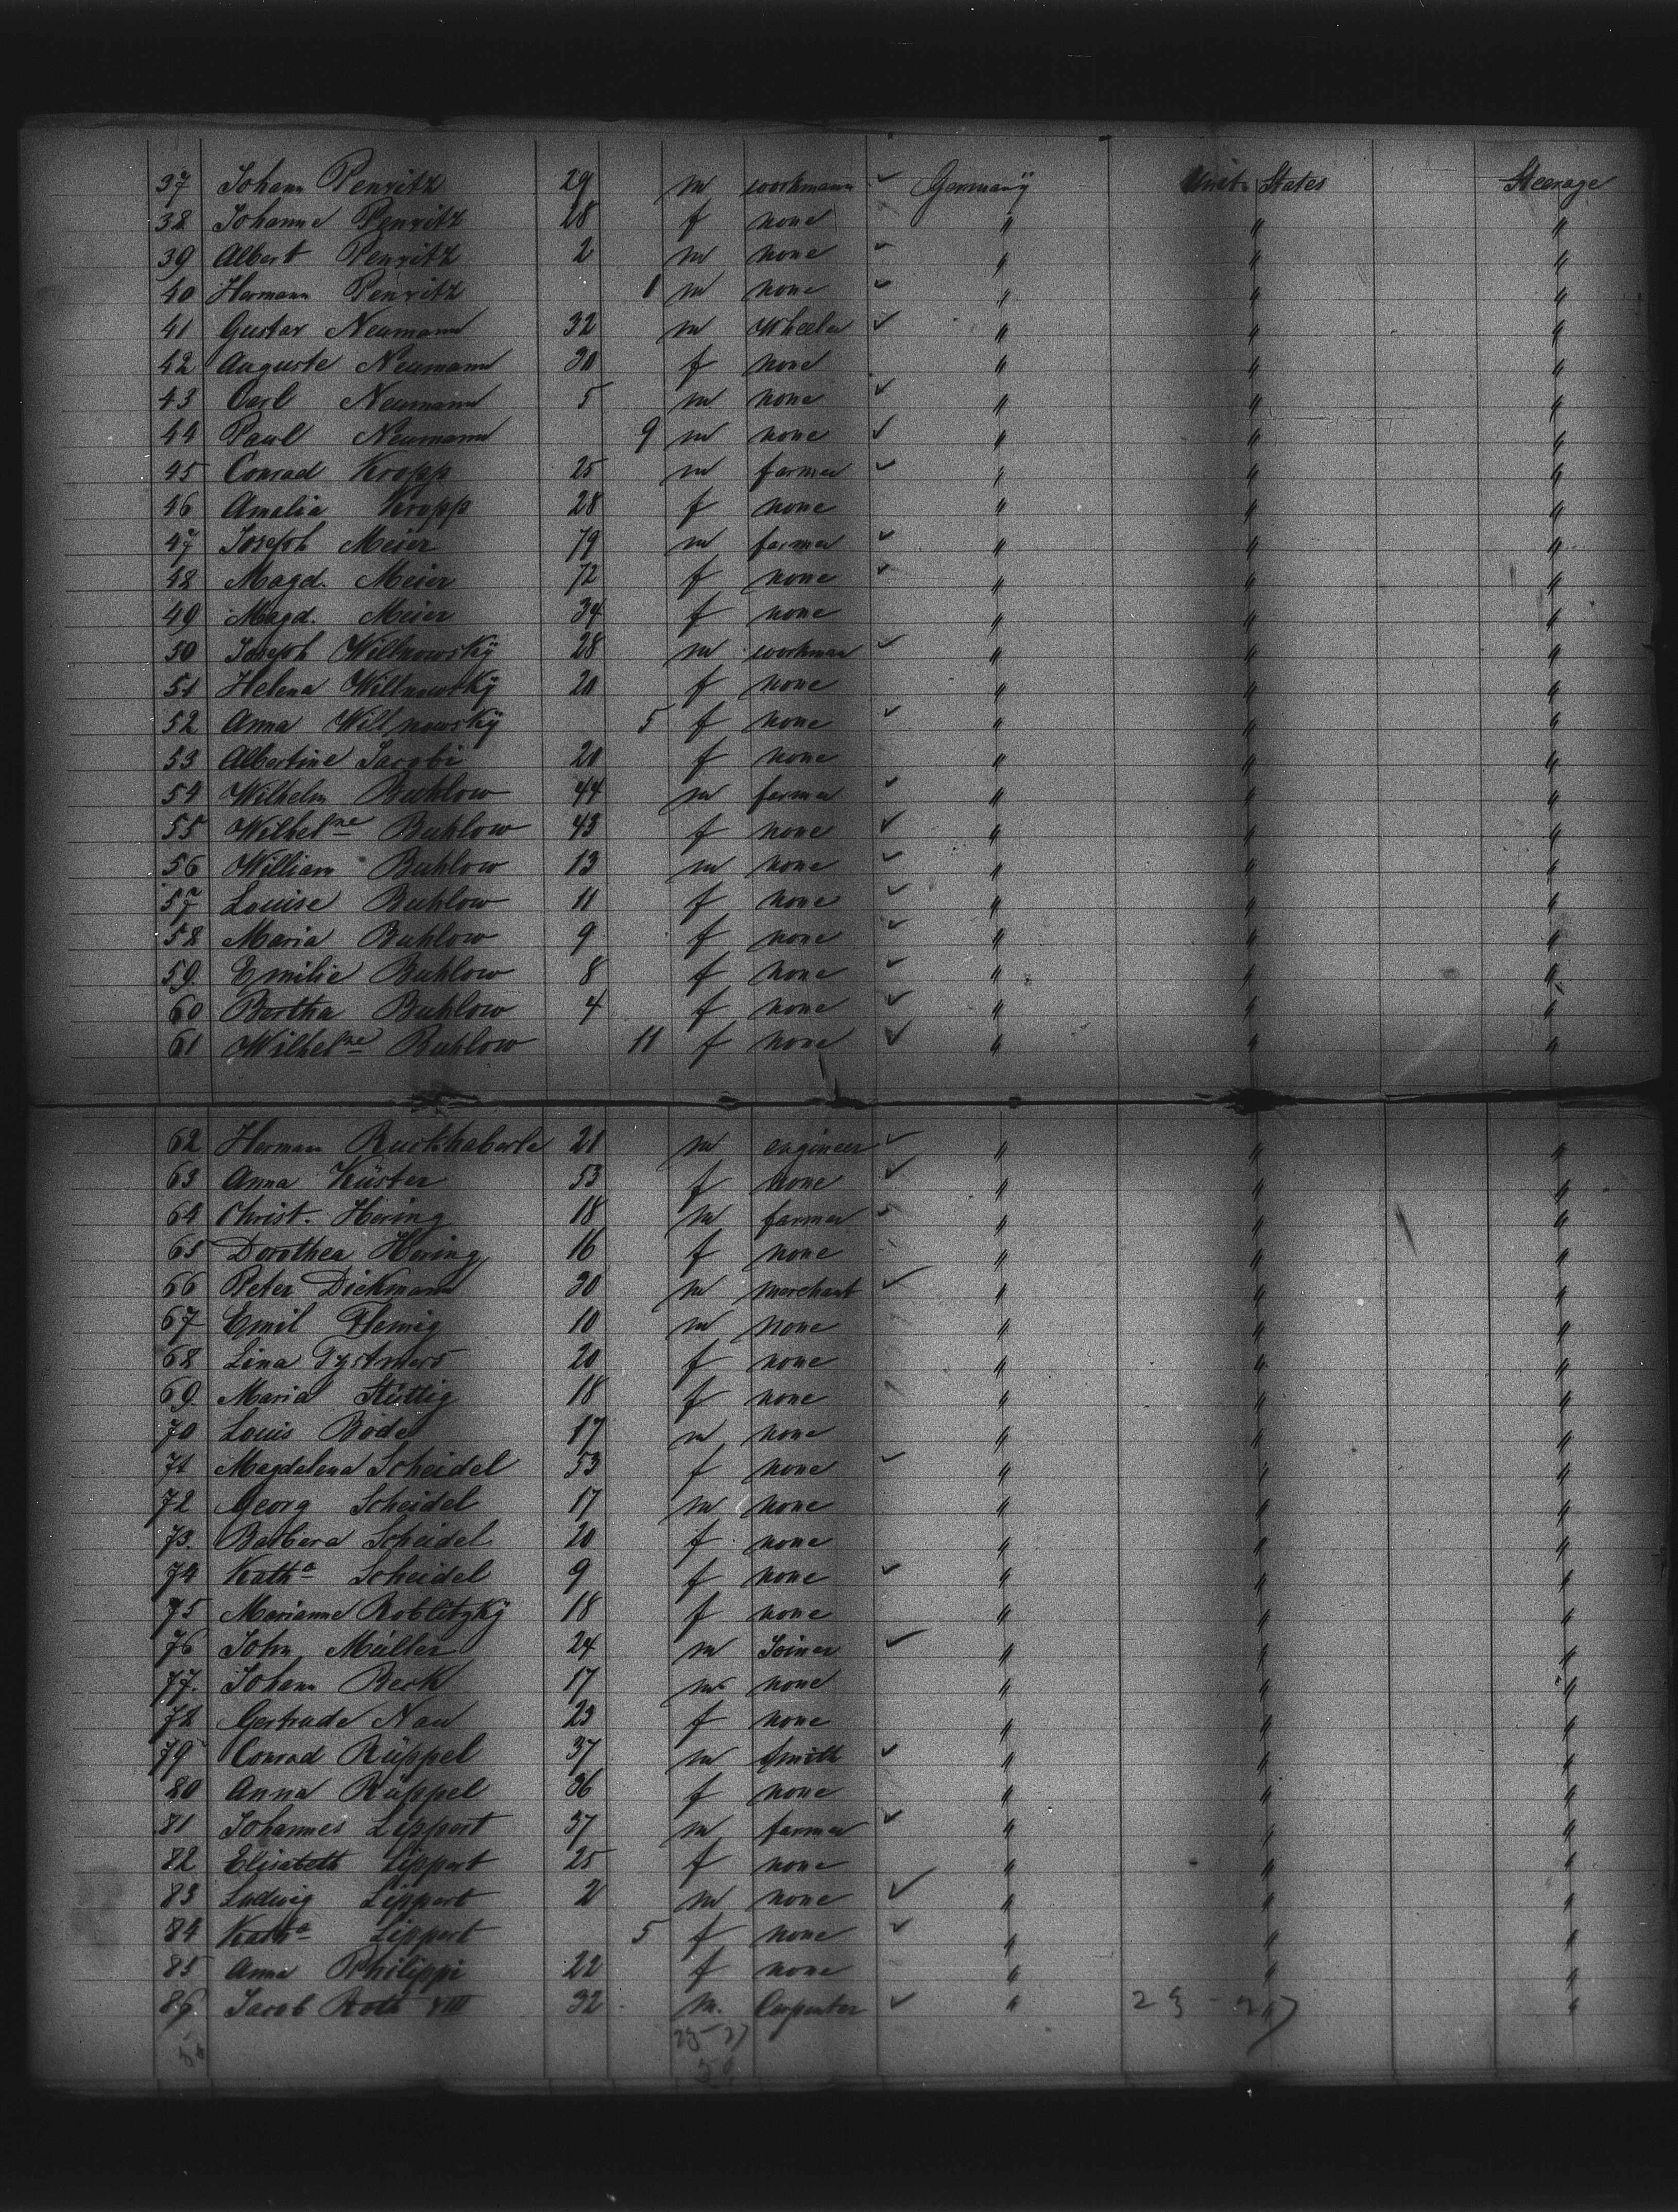 37 Johann Penritz 29 m workmann ✓ Germany Unit. States Steerage
38 Johanne Penritz 28 f none " " "
39 Albert Penritz 2 m none ✓ " " "
40 Hermann Penritz 1 m none ✓ " " "
41 Gustav Neumann 32 m Wheeler ✓ " " "
42 Auguste Neumann 30 f none " " "
43 Carl Neumann 5 m none ✓ " " "
44 Paul Neumann 9 m none ✓ " " "
45 Conrad Kropp 25 m farmer ✓ " " "
46 Amalia Kropp 28 f none " " "
47 Joseph Meier 79 m farmer ✓ " " "
48 Magd. Meier 72 f none ✓ " " "
49 Magd. Meier 34 f none " " "
50 Joseph Willnowsky 28 m workman ✓ " " "
51 Helena Willnowsky 20 f none " " "
52 Anna Willnowsky 5 f none ✓ " " "
53 Albertine Jacobi 20 f none " " "
54 Wilhelm Buhlow 44 m farmer ✓ " " "
55 Wilhelne Buhlow 43 f none ✓ " " "
56 William Buhlow 13 m none ✓ " " "
57 Louise Buhlow 11 f none ✓ " " "
58 Maria Buhlow 9 f none ✓ " " "
59. Emilie Buhlow 8 f none ✓ " " "
60 Bertha Buhlow 4 f none ✓ " " "
61 Wilhelne Buhlow 11 f none ✓ " " "
62 Herman Ruckhaberle 21 m engineer ✓ " " "
63 Anna Küster 53 f none ✓ " " "
64 Christ. Hering 18 m farmer ✓ " " "
65 Dorothea Hering 16 f none " " "
66 Peter Dickmann 30 m merchant ✓ " " "
67 Emil Flemig 10 m none " " "
68 Lina 20 f none " " "
69. Maria Stüttig 18 f none " " "
70 Louis Bode 17 m none " " "
71 Magdalena Scheidel 53 f none ✓ " " "
72 Georg Scheidel 17 m none " " "
73. Barbera Scheidel 20 f none " " "
74 Katha Scheidel 9 f none ✓ " " "
75 Marianne Roblitzky 18 f none " " "
76 John Müller 24 m Joiner ✓ " " "
77. Johann Beck 17 m none " " "
78 Gertrude Nau 23 f none " " "
79 Conrad Rüppel 37 m Smith ✓ " " "
80 Anna Rüppel 36 f none " " "
81 Johannes Lippert 37 m farmer ✓ " " "
82 Elisabeth Lippert 25 f none " " "
83 Ludwig Lippert 2 m none ✓ " " "
84 Katha Lippert 5 f none ✓ " " "
85 Anna Philippi 22 f none " " "
86. Jacob Roth VIII 32 m. Carpenter ✓ " " "